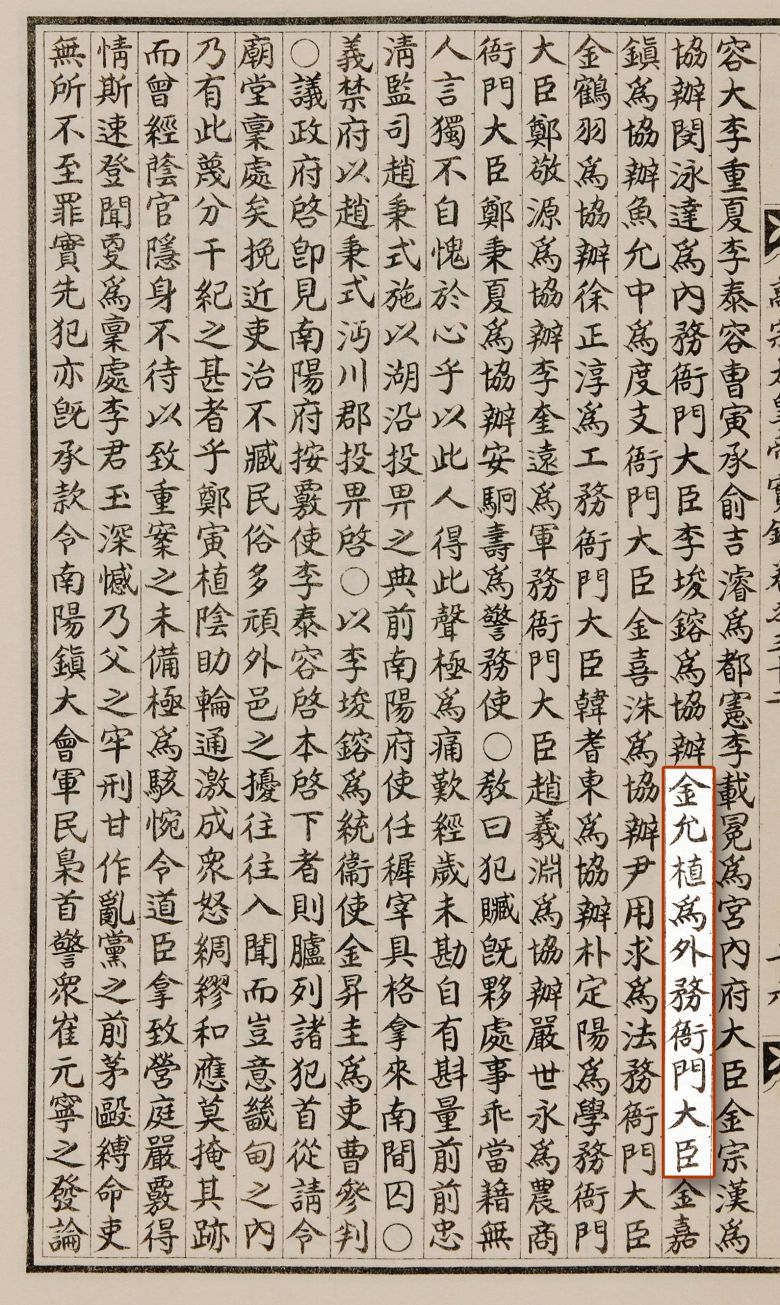 容大李重夏李泰容曺寅承俞吉濬爲都憲李載冕爲宮內府大臣金宗漢爲
協辦閔泳達爲內務衙門大臣李埈鎔爲協辦金允植爲外務衙門大臣金嘉
鎭爲協辦魚允中爲度支衙門大臣金喜洙爲協辦尹用求爲法務衙門大臣
金鶴羽爲協辦徐正淳爲工務衙門大臣韓耆東爲協辦朴定陽爲學務衙門
大臣鄭敬源爲協辦李奎遠爲軍務衙門大臣趙羲淵爲協辦嚴世永爲農商
衙門大臣鄭秉夏爲協辦安駉壽爲警務使○敎曰犯贓旣夥處事乖當藉無
人言獨不自愧於心乎以此人得此聲極爲痛歎經歲未勘自有斟量前前忠
淸監司趙秉式施以湖沿投畀之典前南陽府使任穉宰具格拿來南間囚○
義禁府以趙秉式沔川郡投畀啓○以李埈鎔爲統衛使金昇圭爲吏曹參判
○議政府啓卽見南陽府按覈使李泰容啓本啓下者則臚列諸犯首從請令
廟堂稟處矣挽近吏治不臧民俗多頑外邑之擾往往入聞而豈意畿甸之內
乃有此蔑分干紀之甚者乎鄭寅植陰助輪通激成衆怒綢繆和應莫掩其跡
而曾經蔭官隱身不待以致重案之未備極爲駭惋令道臣拿致營庭嚴覈得
情斯速登聞更爲稟處李君玉深憾乃父之牢刑甘作亂黨之前茅毆縛命吏
無所不至罪實先犯亦旣承款令南陽鎭大會軍民梟首警衆崔元寧之發論